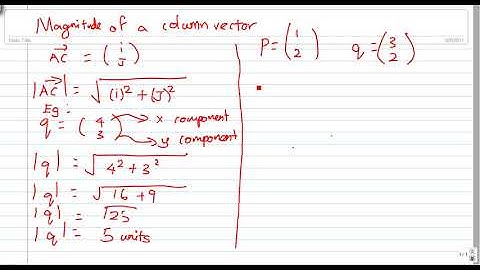 Magnitude of a column vector
AC = (i
J)
|AC| = √(i)² + (J)²
Eg:
q = (4 → x component
3) → y component
|q| = √4² + 3²
|q| = √16 + 9
|q| = √25
|q| = 5 units
P = (1
2)
q = (3
2)